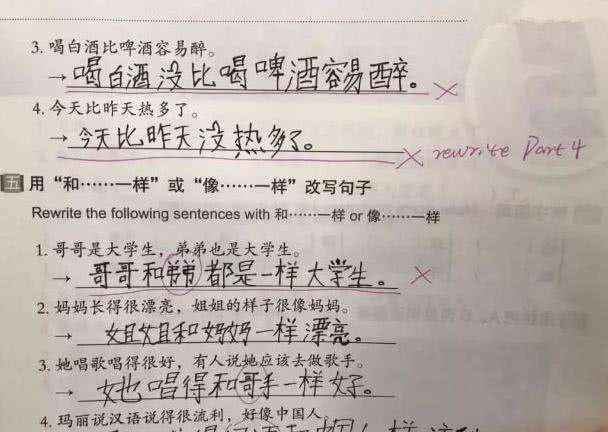 3. 喝白酒比啤酒容易醉。
→ 喝白酒没比喝啤酒容易醉。 ×
4. 今天比昨天热多了。
→ 今天比昨天没热多了。 × rewrite Part 4
五 用“和……一样”或“像……一样”改写句子
Rewrite the following sentences with 和……一样 or 像……一样
1. 哥哥是大学生，弟弟也是大学生。
→ 哥哥和弟弟都是一样大学生。 ×
2. 妈妈长得很漂亮，姐姐的样子很像妈妈。
→ 姐姐和妈妈一样漂亮。
3. 她唱歌唱得很好，有人说她应该去做歌手。
→ 她唱得和歌手一样好。
4. 玛丽说汉语说得很流利，好像中国人。